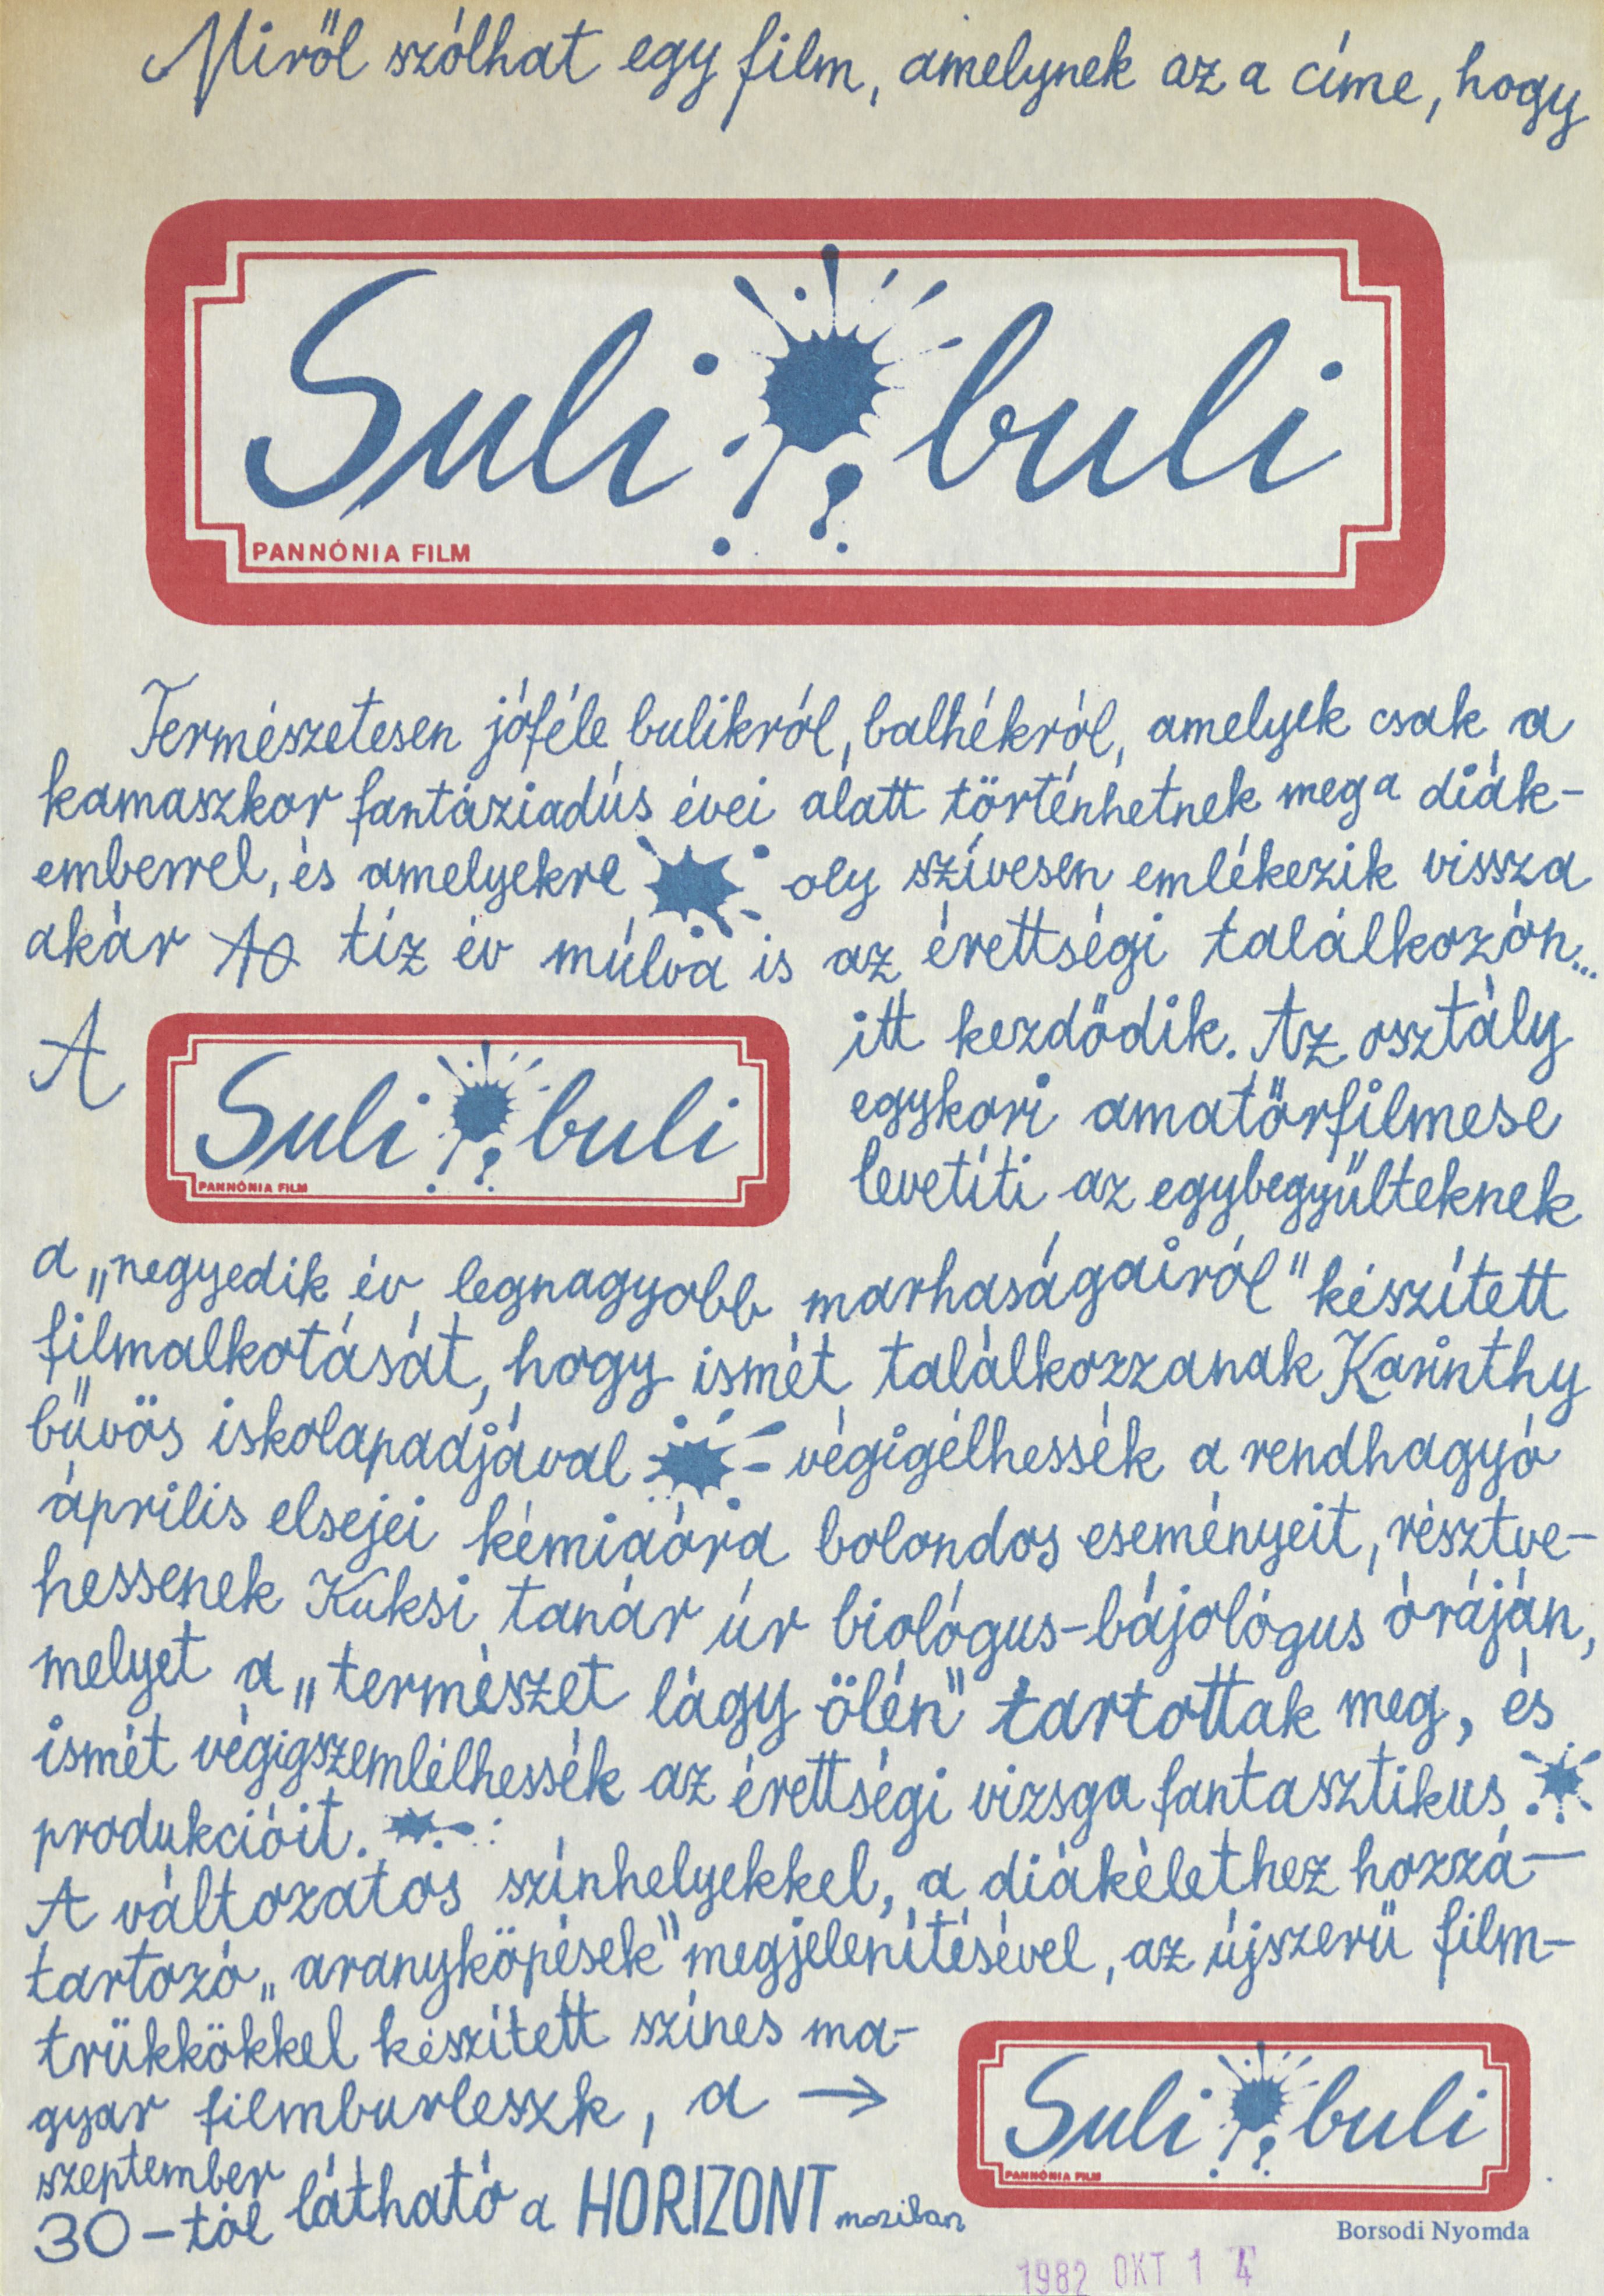 Miről szólhat egy film, amelynek az a címe, hogy
Suli buli
PANNÓNIA FILM
Természetesen jóféle bulikról, balhékról, amelyek csak a
kamaszkor fantáziadús évei alatt történhetnek meg a diák-
emberrel, és amelyekre oly szívesen emlékezik vissza
akár 10 tíz év múlva is az érettségi találkozón...
A
Suli buli
PANNÓNIA FILM
itt kezdődik. Az osztály
egykori amatőrfilmese
levetíti az egybegyűlteknek
a „negyedik év legnagyobb marhaságairól" készített
filmalkotását, hogy ismét találkozzanak Karinthy
bűvös iskolapadjával végigélhessék a rendhagyó
április elsejei kémiaóra bolondos eseményeit, résztve-
hessenek Kuksi tanár úr biológus-bájológus óráján,
melyet a „természet lágy ölén" tartottak meg, és
ismét végigszemlélhessék az érettségi vizsga fantasztikus
produkcióit.
A változatos színhelyekkel, a diákélethez hozzá-
tartozó „aranyköpések" megjelenítésével, az újszerű film-
trükkökkel készített színes ma-
gyar filmburleszk, a →
Suli buli
PANNÓNIA FILM
szeptember
30-tól látható a HORIZONT moziban
Borsodi Nyomda
1982 OKT 14